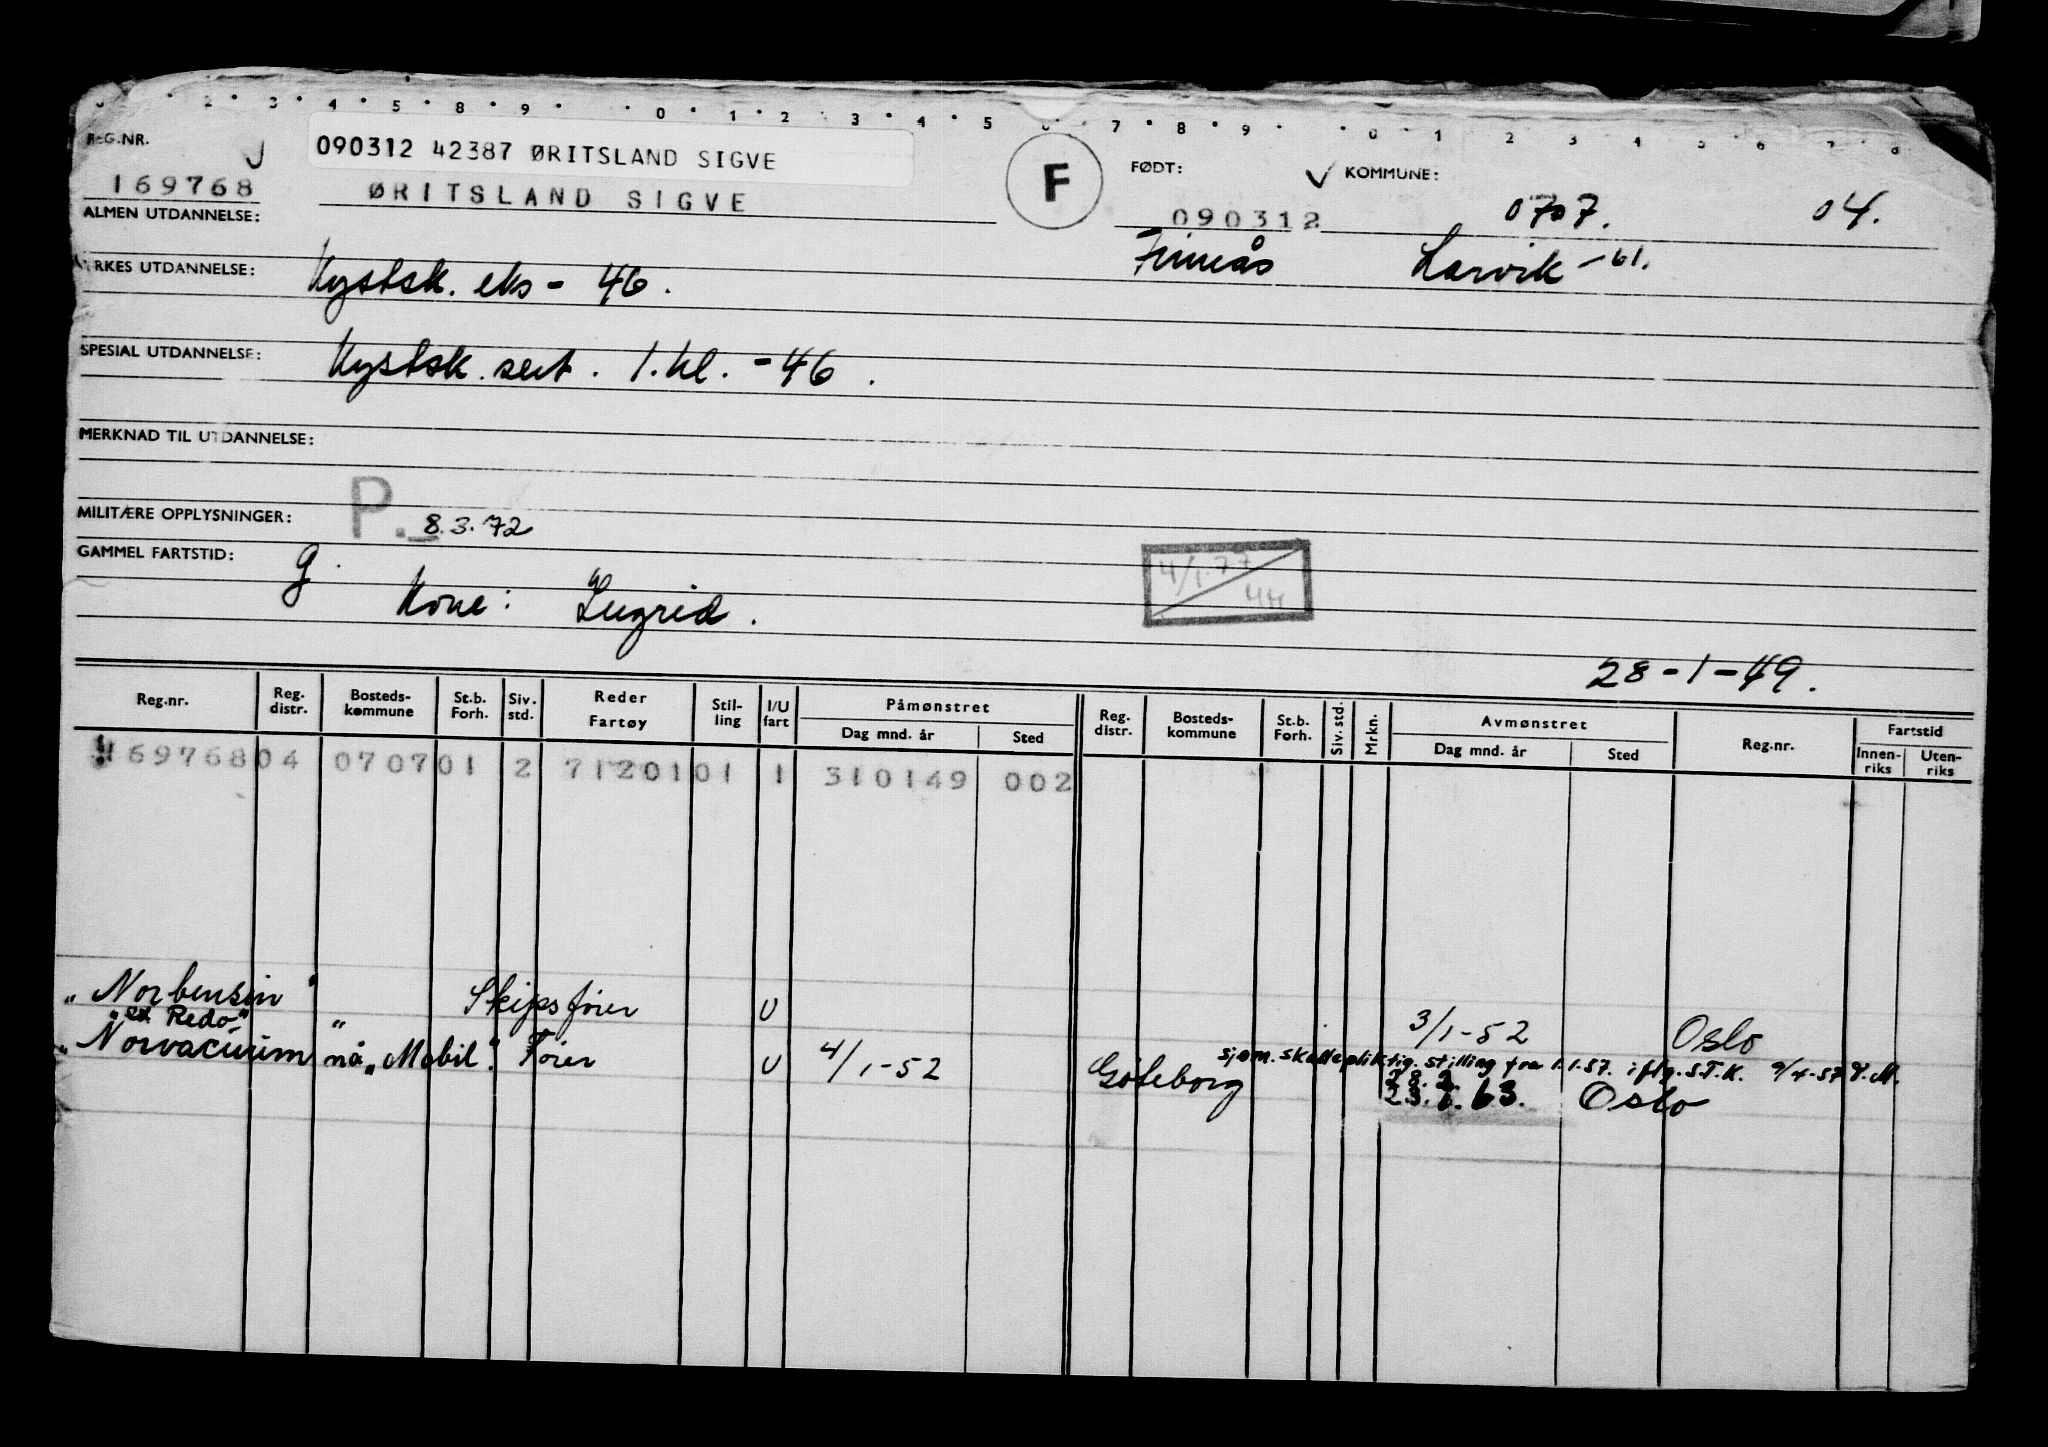 2 3 4 5 8 9 0 1 2 3 4 5 7 8 9 0 1 2 3 4 5
REG.NR.
090312 42387 ØRITSLAND SIGVE
F
FØDT:
KOMMUNE:
169768
ØRITSLAND SIGVE
090312
0707.
04.
ALMEN UTDANNELSE:
Finnås
Larvik -61.
YRKES UTDANNELSE:
Kystsk. eks - 46.
SPESIAL UTDANNELSE:
Kystsk. sert. 1. kl. - 46.
MERKNAD TIL UTDANNELSE:
MILITÆRE OPPLYSNINGER:
P.
8.3.72
GAMMEL FARTSTID:
g.
4/1.77
Kone: Ingrid.
28-1-49.
Reg.nr. Reg. distr. Bosteds-kommune St.b. Forh. Siv. std. Reder Fartøy Stil-ling I/U fart Påmønstret Dag mnd. år Sted Reg. distr. Bosteds-kommune St.b. Forh. Siv. std. Mrkn. Avmønstret Dag mnd. år Sted Reg.nr. Fartstid Innen-riks Uten-riks
169768 04 0707 01 2 71201 01 1 310149 002
"Norbensin" Skipsfører U 3/1-52 Oslo
"ex Redo" "
"Norvacuum nå "Mobil". Fører U 4/1-52 Göteborg
sjøm. skattepliktig. stilling fra 1.1.57. iflg. S.T.K. 9/4-57 V.M.
63. Oslo